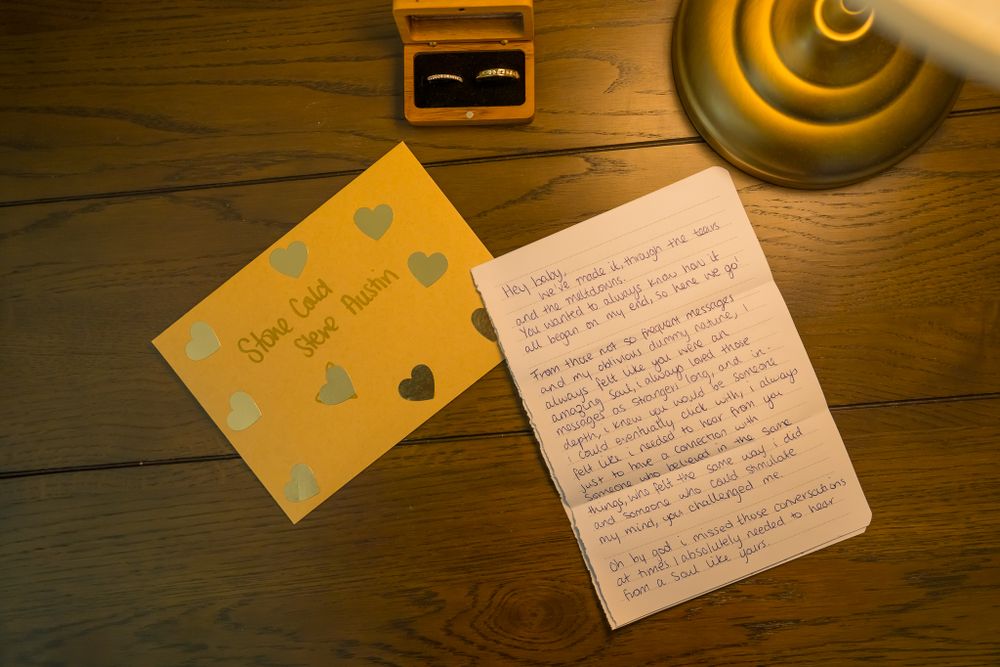 Stone Cold
Steve Austin
Hey baby,
We've made it, through the tears
and the meltdowns.
You wanted to always know how it
all began on my end, so here we go!
From those not so frequent messages
and my oblivious dummy nature, I
always felt like you were an
amazing soul, i always loved those
messages as strangers long, and in-
depth, i knew you would be someone
I could eventually click with, i always
felt like i needed to hear from you
just to have a connection with
someone who believed in the same
things, who felt the same way i did
and someone who could stimulate
my mind, you challenged me.
Oh by god i missed those conversations
at times. I absolutely needed to hear
from a soul like yours.